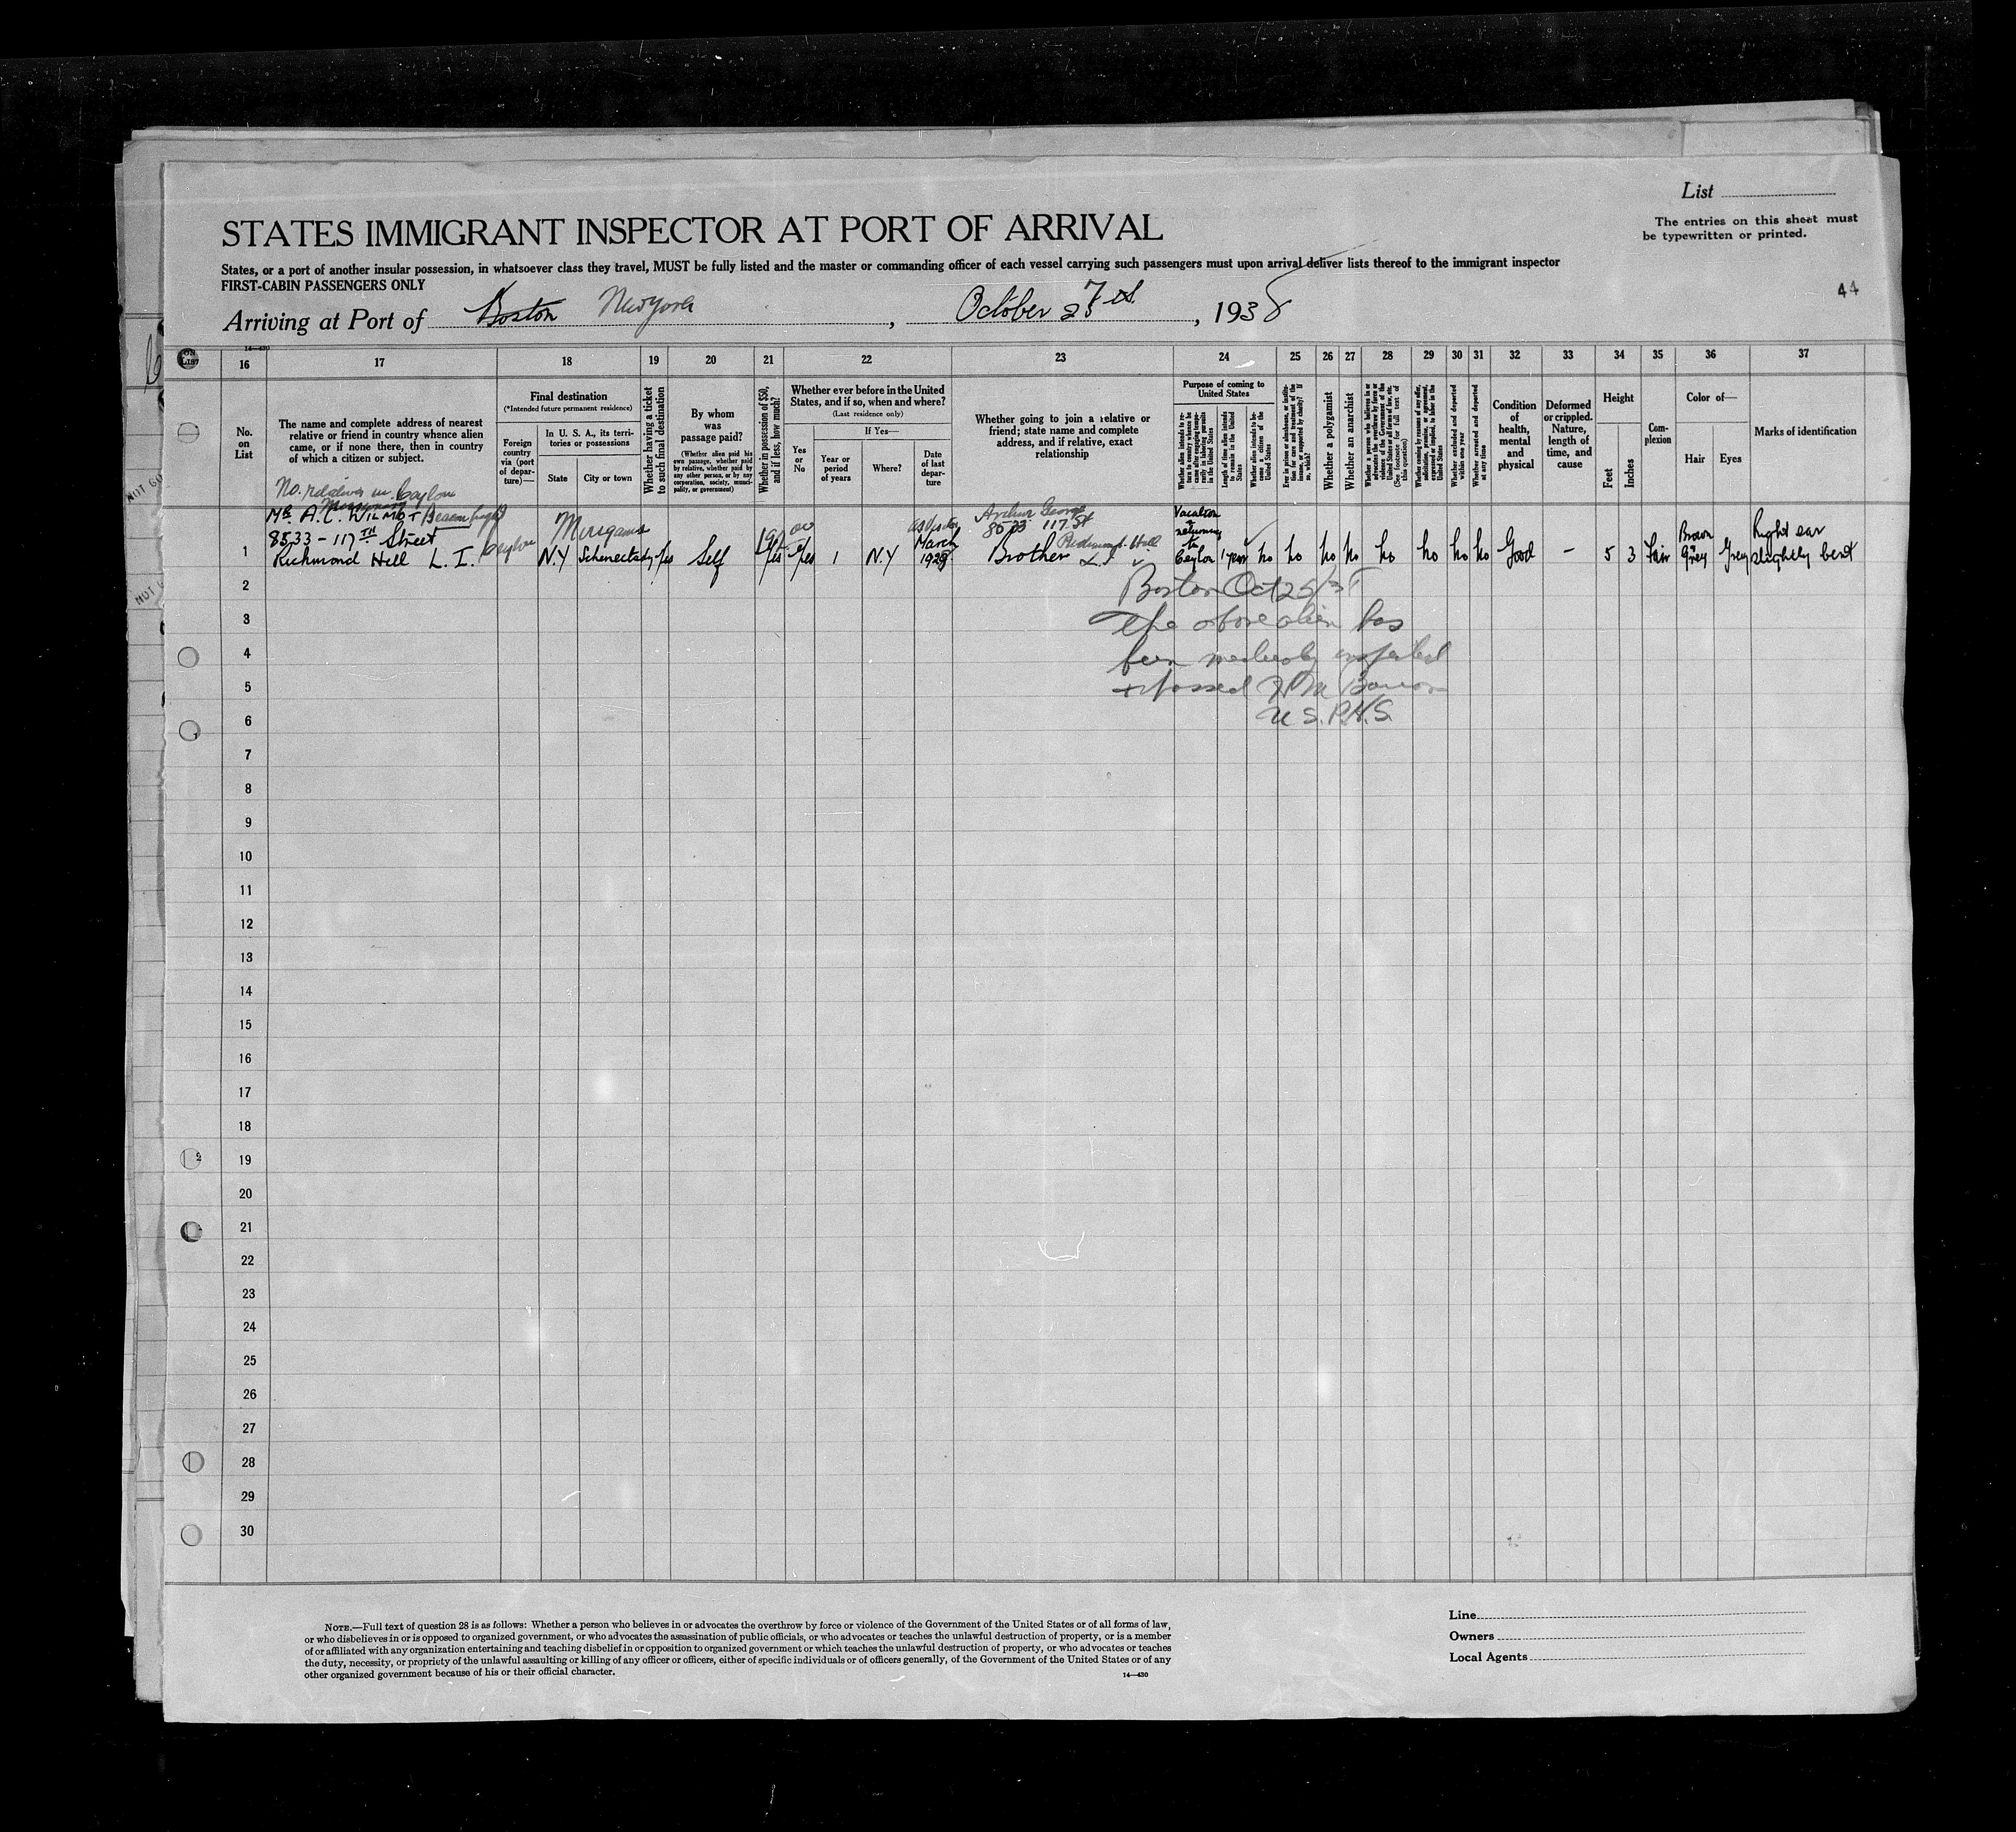 List
The entries on this sheet must
be typewritten or printed.
STATES IMMIGRANT INSPECTOR AT PORT OF ARRIVAL
States, or a port of another insular possession, in whatsoever class they travel, MUST be fully listed and the master or commanding officer of each vessel carrying such passengers must upon arrival deliver lists thereof to the immigrant inspector
FIRST-CABIN PASSENGERS ONLY
44
Arriving at Port of Boston New York, October 27, 1938
14—430
16 17 18 19 20 21 22 23 24 25 26 27 28 29 30 31 32 33 34 35 36 37
No.
on
List
The name and complete address of nearest
relative or friend in country whence alien
came, or if none there, then in country
of which a citizen or subject.
Final destination
(*Intended future permanent residence)
Foreign
country
via (port
of depar-
ture)—
In U. S. A., its terri-
tories or possessions
State
City or town
Whether having a ticket
to such final destination
By whom
was
passage paid?
(Whether alien paid his
own passage, whether paid
by relative, whether paid by
any other person, or by any
corporation, society, munici-
pality, or government)
Whether in possession of $50,
and if less, how much?
Whether ever before in the United
States, and if so, when and where?
(Last residence only)
Yes
or
No
If Yes—
Year or
period
of years
Where?
Date
of last
depar-
ture
Whether going to join a relative or
friend; state name and complete
address, and if relative, exact
relationship
Purpose of coming to
United States
Length of time alien intends
to remain in the United
States
Whether alien intends to be-
come a citizen of the
United States
Whether a polygamist
Whether an anarchist
(See footnote for full text of
this question)
Whether excluded and deported
within one year
Whether arrested and deported
at any time
Condition
of
health,
mental
and
physical
Deformed
or crippled.
Nature,
length of
time, and
cause
Height
Feet
Inches
Com-
plexion
Color of—
Hair
Eyes
Marks of identification
No. relatives in Ceylon
Mr. A. C. WILMOT
8533 - 117TH Street
Richmond Hill L. I.
Ceylon
N.Y Schenectady yes Self yes yes 1 N.Y
March
1929
Arthur George
8533 117 St
Richmond Hill
Brother L.I
Vacation
&
returning
to
Ceylon
1 year no no no no no no no no Good — 5 3 Fair
Brown
Grey
Grey
Right ear
slightly bent
Boston Oct 25/38
The above alien has
been medically inspected
+ passed
U.S.P.H.S.
1
2
3
4
5
6
7
8
9
10
11
12
13
14
15
16
17
18
19
20
21
22
23
24
25
26
27
28
29
30
NOTE.—Full text of question 28 is as follows: Whether a person who believes in or advocates the overthrow by force or violence of the Government of the United States or of all forms of law,
or who disbelieves in or is opposed to organized government, or who advocates the assassination of public officials, or who advocates or teaches the unlawful destruction of property, or is a member
of or affiliated with any organization entertaining and teaching disbelief in or opposition to organized government or which teaches the unlawful destruction of property, or who advocates or teaches
the duty, necessity, or propriety of the unlawful assaulting or killing of any officer or officers, either of specific individuals or of officers generally, of the Government of the United States or of any
other organized government because of his or their official character.
14—430
Line
Owners
Local Agents